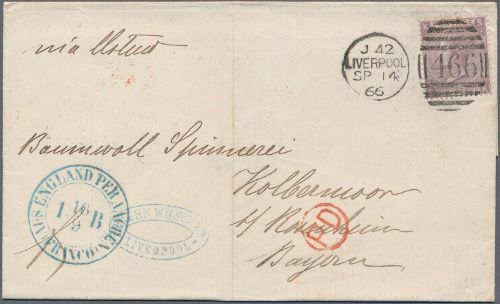 via Ostend
J 42
LIVERPOOL
SP 14
66
466
Baumwoll Spinnerei
Kolbermoor
b/ Rosenheim
Bayern
PD
AUS ENGLAND PER AACHEN
16
1. B
9
FRANCO
LIVERPOOL